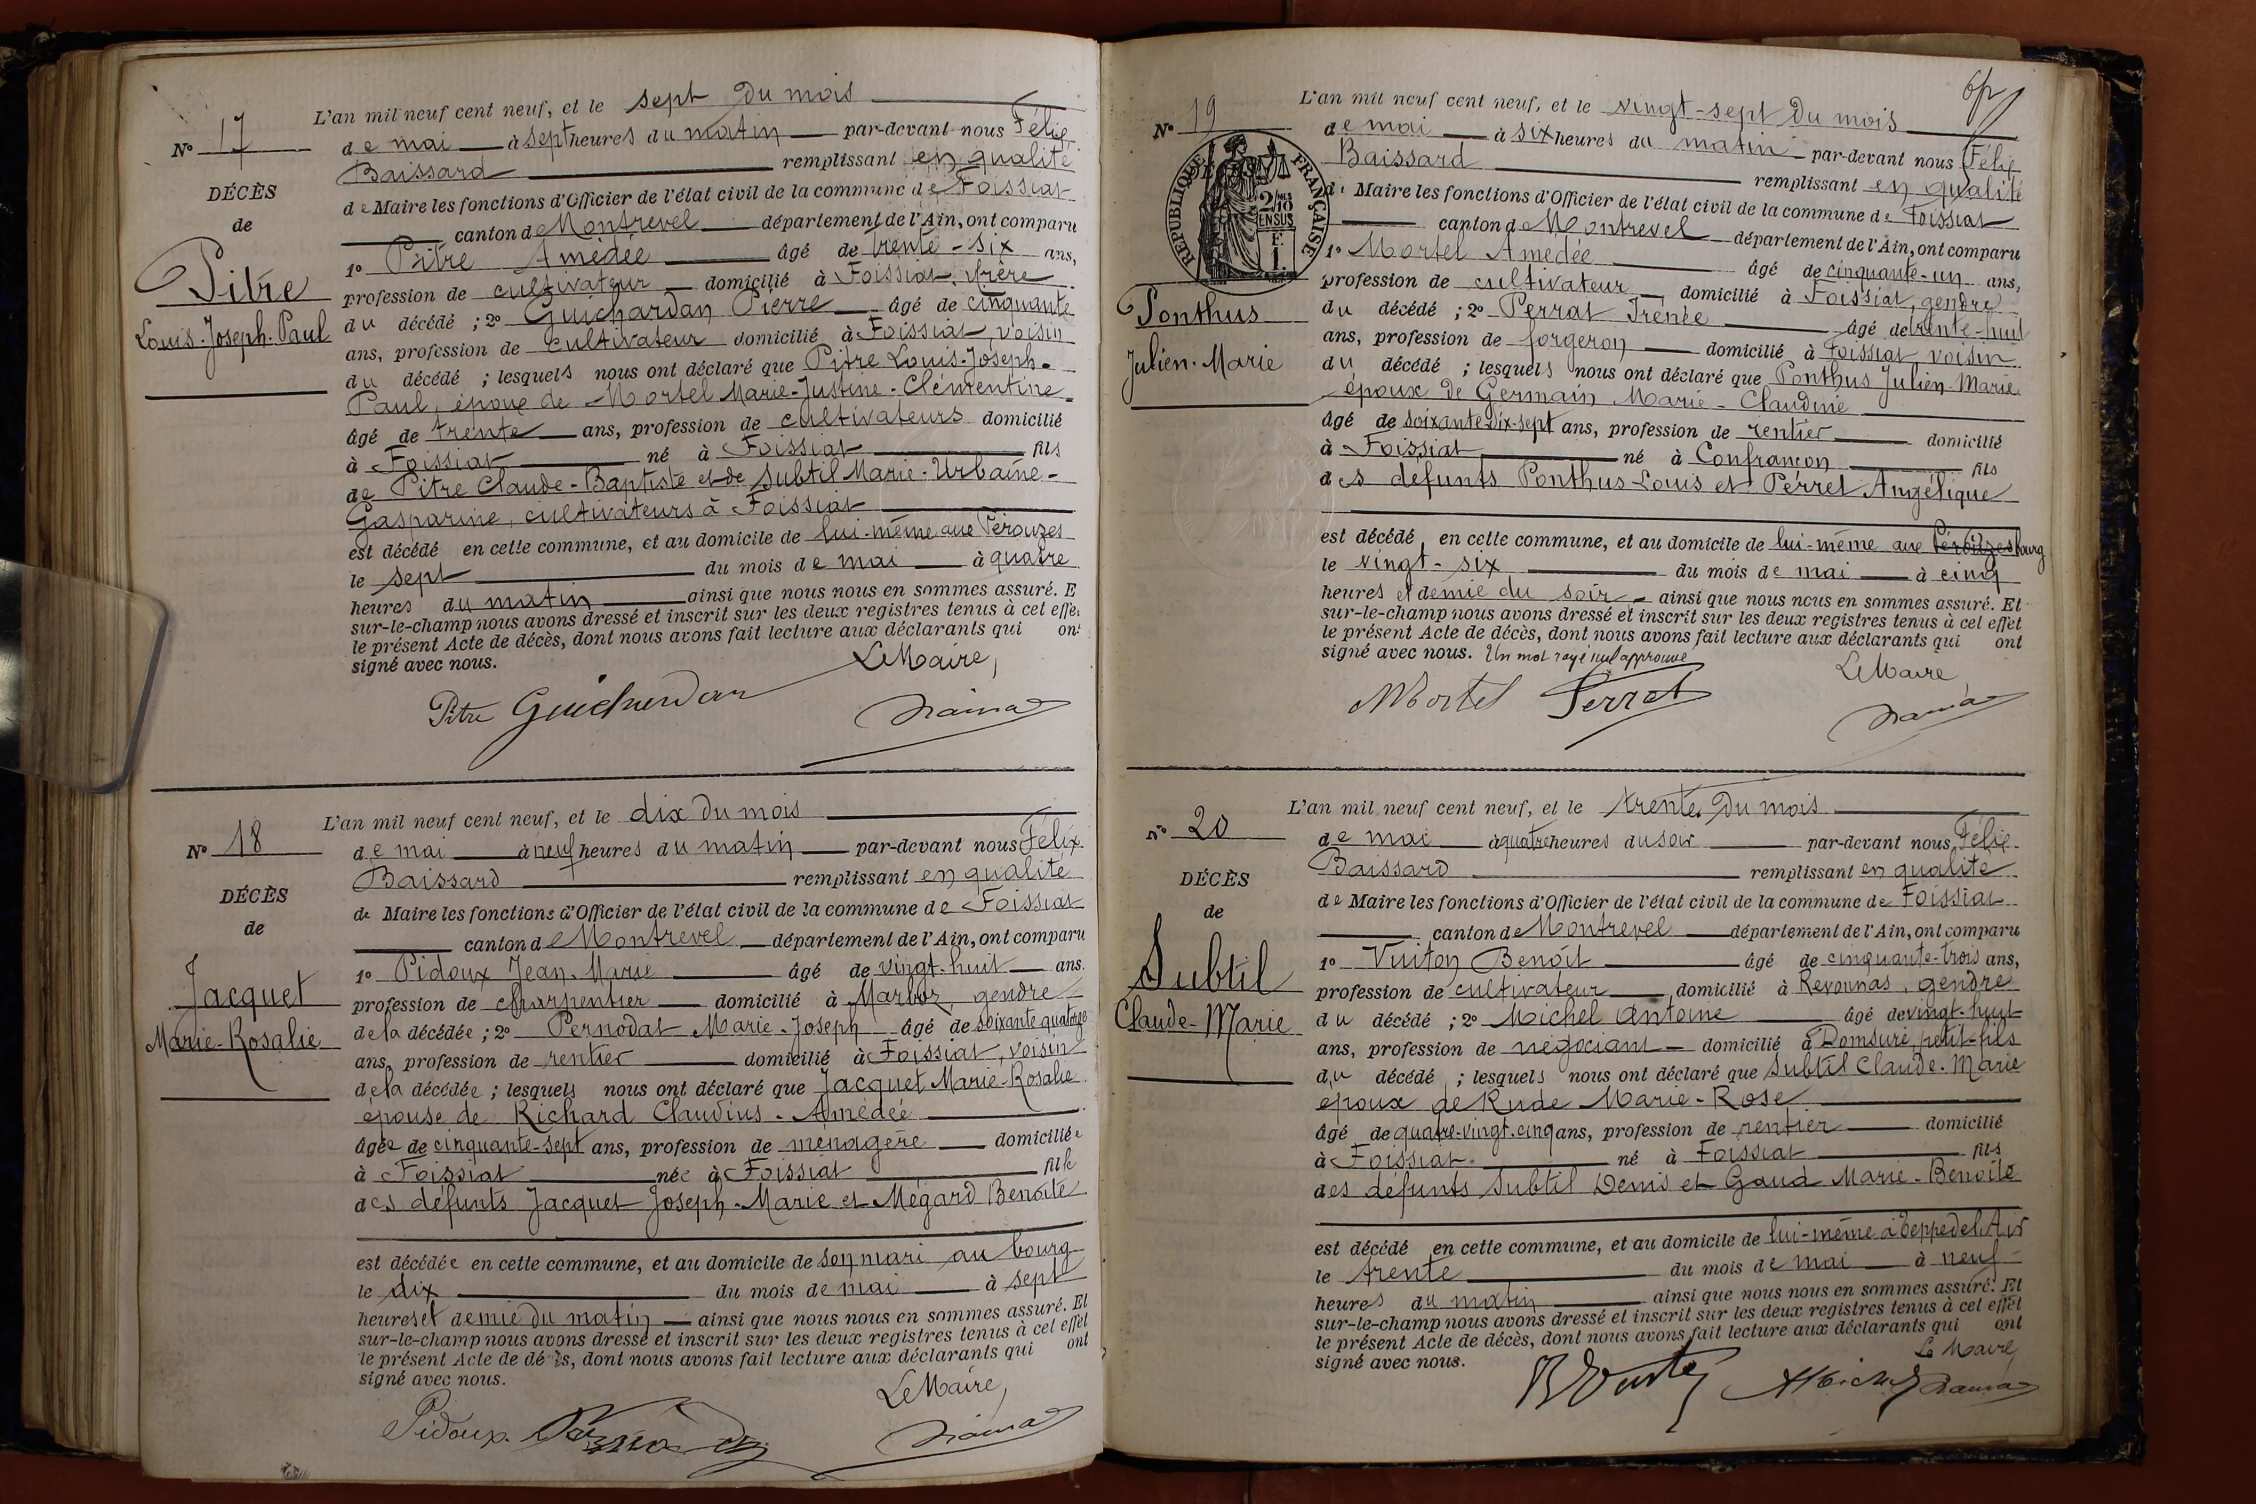 L'an mil neuf cent neuf, et le sept du mois
N° 17
de mai à sept heures du matin par-devant nous Félix
Baissard remplissant en qualité
DÉCÈS
de Maire les fonctions d'Officier de l'état civil de la commune de Foissiat
de
canton de Montrevel département de l'Ain, ont comparu
1° Pitre Amédée âgé de trente-six ans,
Pitre
profession de cultivateur domicilié à Foissiat, frère
Louis-Joseph-Paul
du décédé ; 2° Guichardan Pierre âgé de cinquante
ans, profession de cultivateur domicilié à Foissiat, voisin
du décédé ; lesquels nous ont déclaré que Pitre Louis-Joseph-
Paul, époux de Mortel Marie-Justine-Clémentine
âgé de trente ans, profession de cultivateurs domicilié
à Foissiat né à Foissiat fils
de Pitre Claude-Baptiste et de Subtil Marie-Urbaine-
Gasparine, cultivateurs à Foissiat
est décédé en cette commune, et au domicile de lui-même aux Pérouzes
le sept du mois de mai à quatre
heures du matin ainsi que nous nous en sommes assuré. E
sur-le-champ nous avons dressé et inscrit sur les deux registres tenus à cet effe
le présent Acte de décès, dont nous avons fait lecture aux déclarants qui ont
signé avec nous.
Le Maire,
Pitre Guichardan
L'an mil neuf cent neuf, et le dix du mois
N° 18
de mai à neuf heures du matin par-devant nous Félix
Baissard remplissant en qualité
DÉCÈS
de Maire les fonctions d'Officier de l'état civil de la commune de Foissiat
de
canton de Montrevel département de l'Ain, ont comparu
1° Pidoux Jean-Marie âgé de vingt-huit ans.
Jacquet
profession de charpentier domicilié à Marboz, gendre
Marie-Rosalie
de la décédée ; 2° Pernodat Marie-Joseph âgé de soixante quatorze
ans, profession de rentier domicilié à Foissiat, voisin
de la décédée ; lesquels nous ont déclaré que Jacquet Marie-Rosalie
épouse de Richard Claudius-Amédée
âgée de cinquante-sept ans, profession de ménagère domiciliée
à Foissiat née à Foissiat fille
des défunts Jacquet Joseph-Marie et Mégard Benoîte
est décédée en cette commune, et au domicile de son mari au bourg
le dix du mois de mai à sept
heures et demie du matin ainsi que nous nous en sommes assuré. Et
sur-le-champ nous avons dressé et inscrit sur les deux registres tenus à cet effet
le présent Acte de décès, dont nous avons fait lecture aux déclarants qui ont
signé avec nous.
Le Maire,
Pidoux
L'an mil neuf cent neuf, et le vingt-sept du mois
N° 19
de mai à six heures du matin par-devant nous Félix
Baissard remplissant en qualité
RÉPUBLIQUE FRANÇAISE
2/10 EN SUS
F. 1.
de Maire les fonctions d'Officier de l'état civil de la commune de Foissiat
canton de Montrevel département de l'Ain, ont comparu
1° Mortel Amédée âgé de cinquante-un ans,
profession de cultivateur domicilié à Foissiat, gendre
Ponthus
Julien-Marie
du décédé ; 2° Perrat Irénée âgé de trente-huit
ans, profession de forgeron domicilié à Foissiat voisin
du décédé ; lesquels nous ont déclaré que Ponthus Julien-Marie
époux de Germain Marie-Claudine
âgé de soixante-dix-sept ans, profession de rentier domicilié
à Foissiat né à Confrançon fils
des défunts Ponthus Louis et Perret Angélique
est décédé en cette commune, et au domicile de lui-même aux Pérouzes bourg
le vingt-six du mois de mai à cinq
heures et demie du soir ainsi que nous nous en sommes assuré. Et
sur-le-champ nous avons dressé et inscrit sur les deux registres tenus à cet effet
le présent Acte de décès, dont nous avons fait lecture aux déclarants qui ont
signé avec nous. Un mot rayé nul approuvé
Le Maire
Mortel Perrat
L'an mil neuf cent neuf, et le trente du mois
N° 20
de mai à quatre heures du soir par-devant nous Félix
Baissard remplissant en qualité
DÉCÈS
de Maire les fonctions d'Officier de l'état civil de la commune de Foissiat
de
canton de Montrevel département de l'Ain, ont comparu
1° Vuiton Benoît âgé de cinquante-trois ans,
Subtil
profession de cultivateur domicilié à Revonnas, gendre
Claude-Marie
du décédé ; 2° Michel Antoine âgé de vingt-huit
ans, profession de négociant domicilié à Domsure, petit-fils
du décédé ; lesquels nous ont déclaré que Subtil Claude-Marie
époux de Rude Marie-Rose
âgé de quatre-vingt-cinq ans, profession de rentier domicilié
à Foissiat né à Foissiat fils
des défunts Subtil Denis et Gaud Marie-Benoîte
est décédé en cette commune, et au domicile de lui-même à
le trente du mois de mai à neuf
heures du matin ainsi que nous nous en sommes assuré. Et
sur-le-champ nous avons dressé et inscrit sur les deux registres tenus à cet effet
le présent Acte de décès, dont nous avons fait lecture aux déclarants qui ont
signé avec nous.
Le Maire,